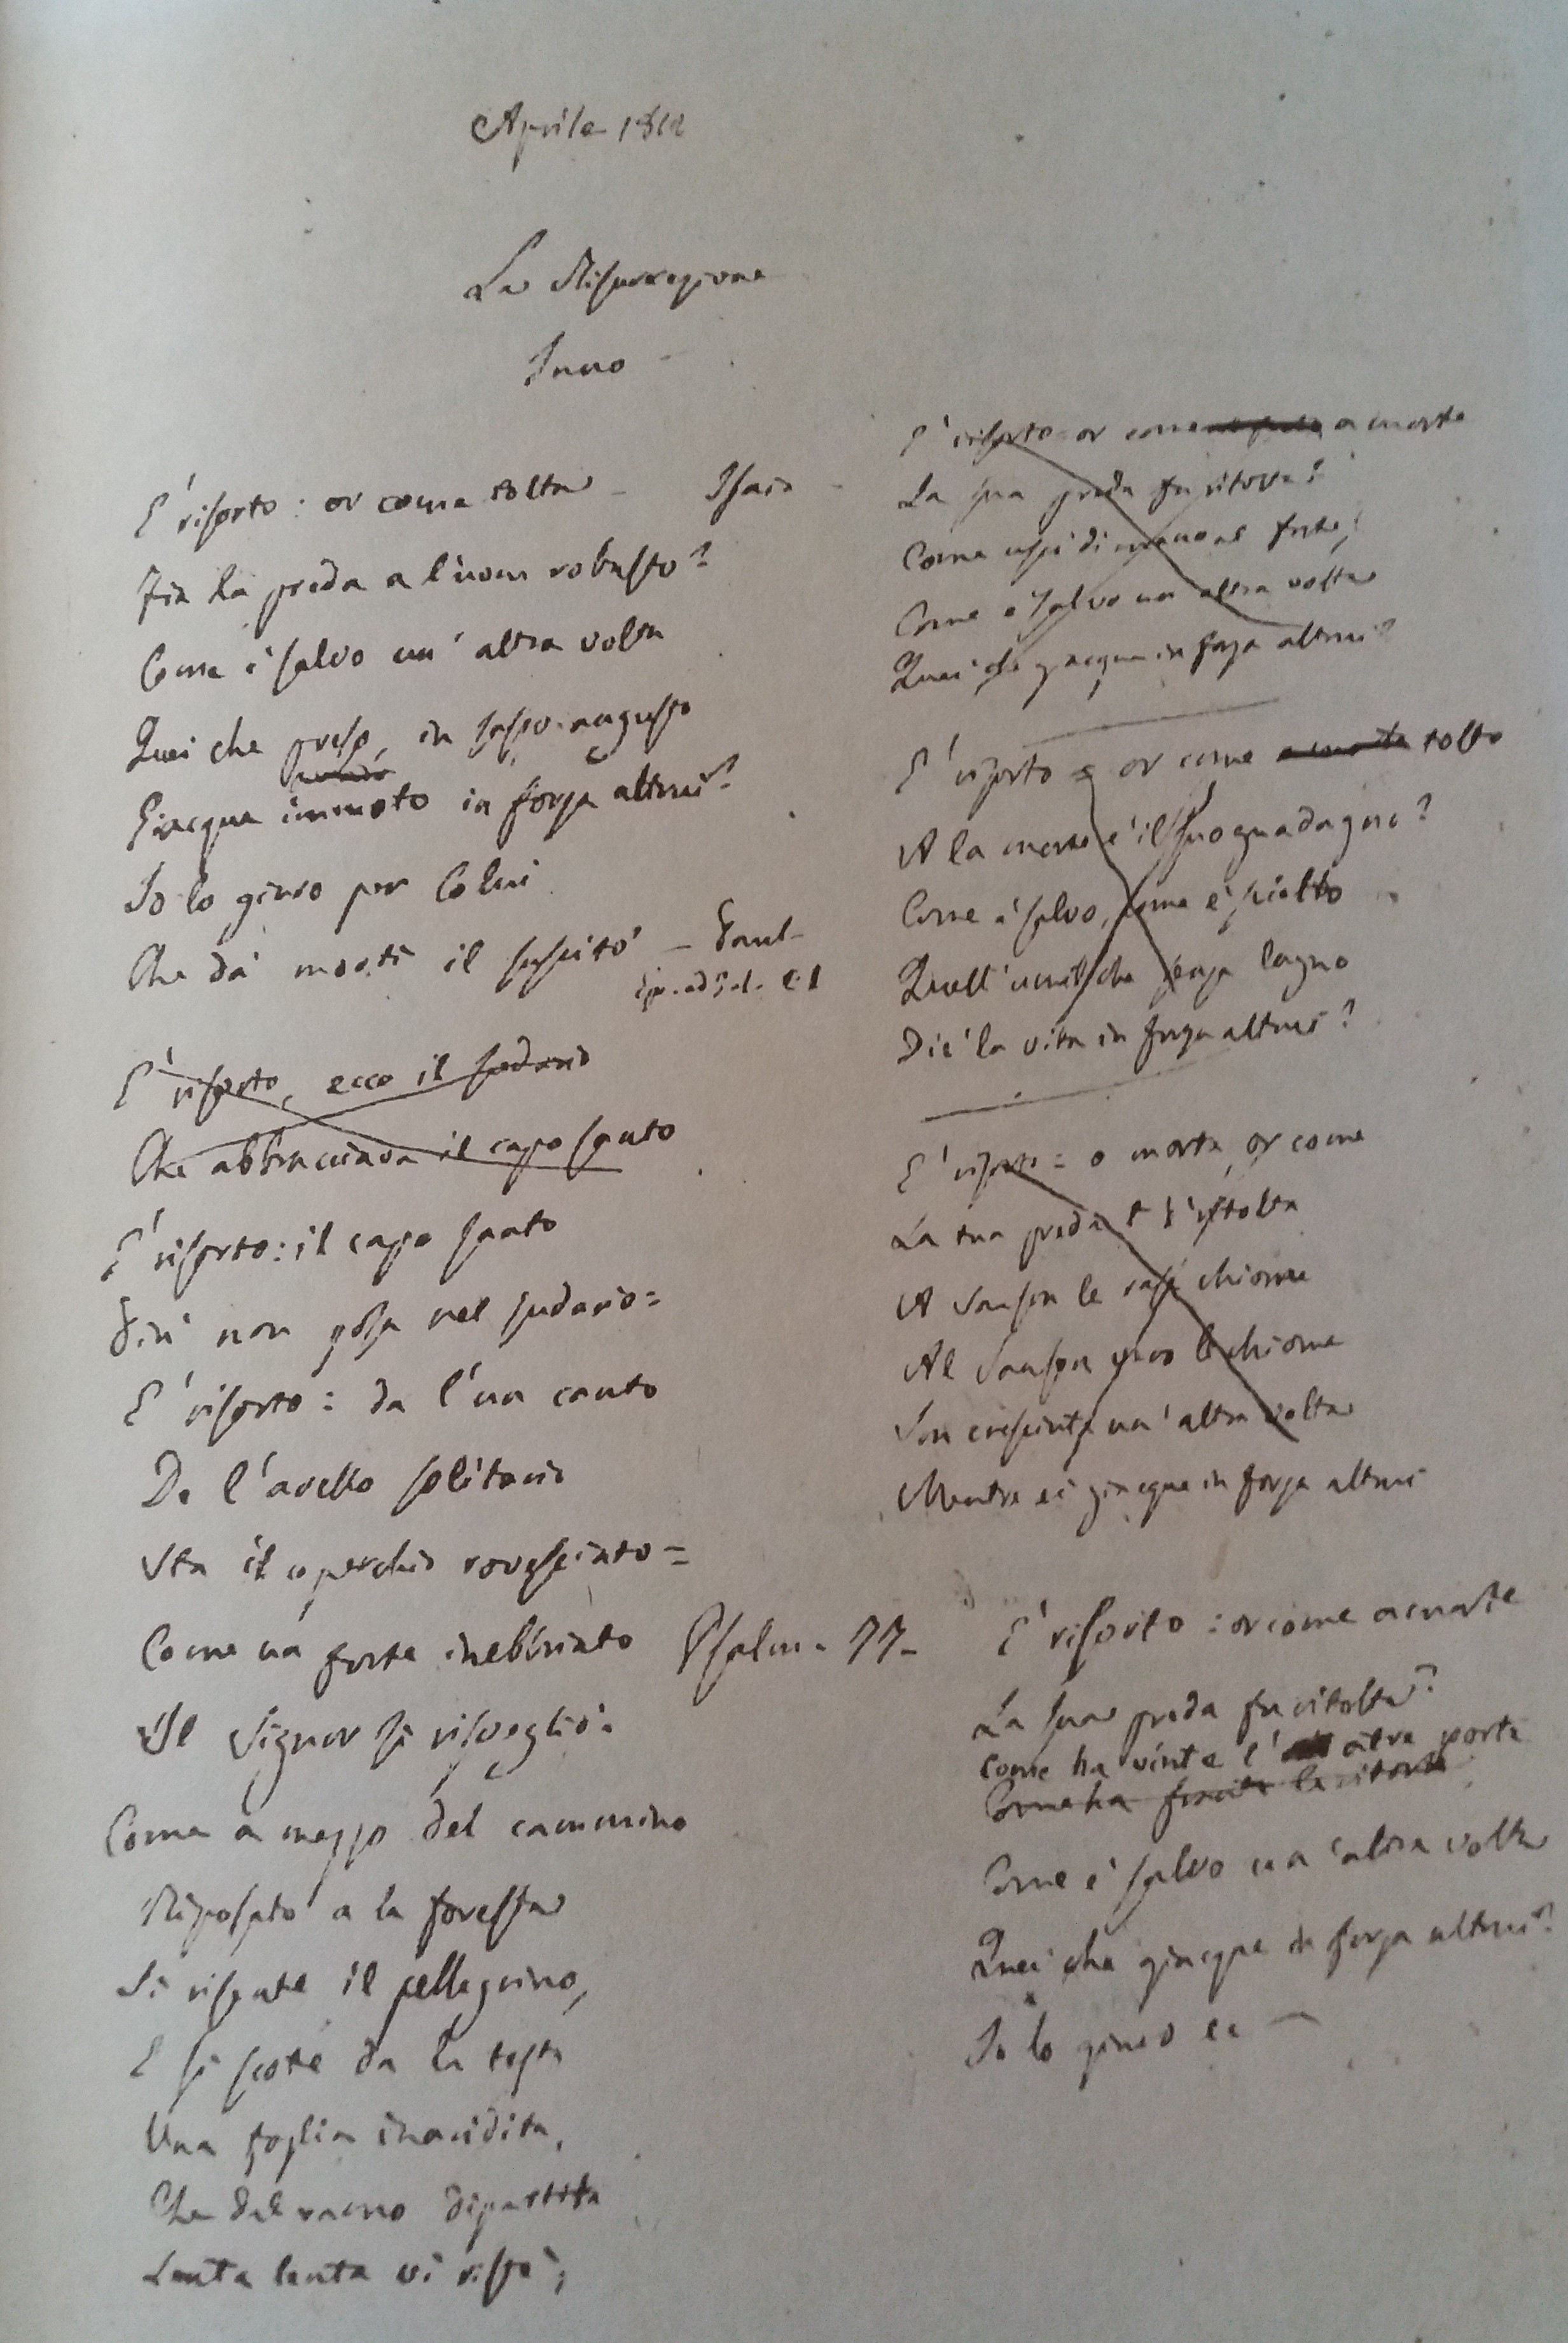 Aprile 1812
La Risurrezione
Inno
E' risorto: or come tolta - Isaia -
Fia la preda a l'uom robusto?
Come è salvo un' altra volta
Quei che preso, in sasso angusto
Giacque immoto in forza altrui?
Io lo giuro per Colui
Che da' morti il suscitò - Paul-
Ep. ad Gal. c. 1
E' risorto, ecco il sudario
Che abbracciava il capo santo
E' risorto: il capo santo
Più non posa nel sudario=
E' risorto: da l'un canto
De l'avello solitario
Sta il coperchio rovesciato=
Come un forte inebbriato Psalm. 77-
Il Signor si risvegliò.
Come a mezzo del cammino
Riposato a la foresta
Si risente il pellegrino,
E si scote da la testa
Una foglia inaridita,
Che dal ramo dipartita
Lenta lenta vi ristè;
E' risorto or come a morte
La sua preda fu ritolta?
Come è salvo un altra volta
Quei che giacque in forza altrui?
E' risorto = or come a morte tolto
A la morte è il suo guadagno?
Come è salvo, come è sciolto
Quell' che senza lagno
Diè la vita in forza altrui?
E' risorto = o morte, or come
La tua preda t' è ritolta
A Sanson le rase chiome
Al Sanson vero le chiome
Son cresciute un' altra volta
Mentre ei giacque in forza altrui
E' risorto: or come a morte
La sua preda fu ritolta?
Come ha vinte l' atre porte
Come ha le ritorte
Come è salvo un' altra volta
Quei che giacque in forza altrui?
Io lo giuro ec -